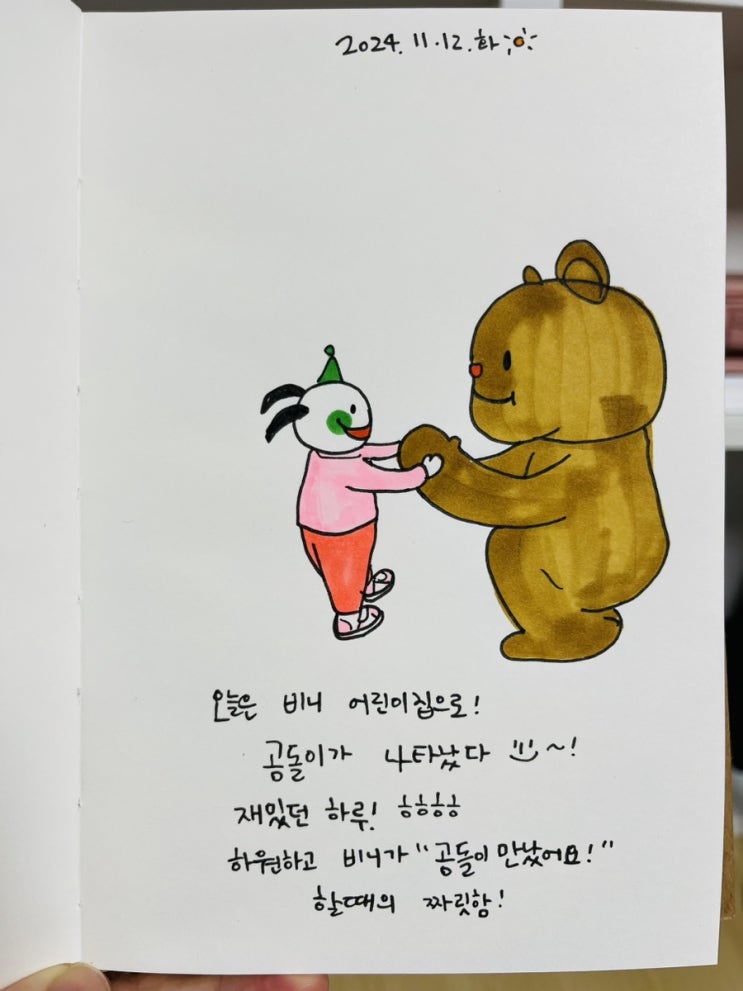 2024. 11. 12. 화
오늘은 비니 어린이집으로!
곰돌이가 나타났다 ~!
재밌던 하루! ㅎㅎㅎㅎ
하원하고 비니가 "곰돌이 만났어요!"
할때의 짜릿함!